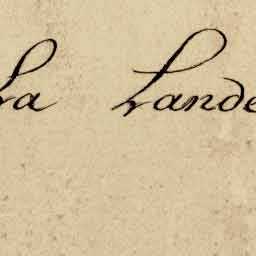 La Lande